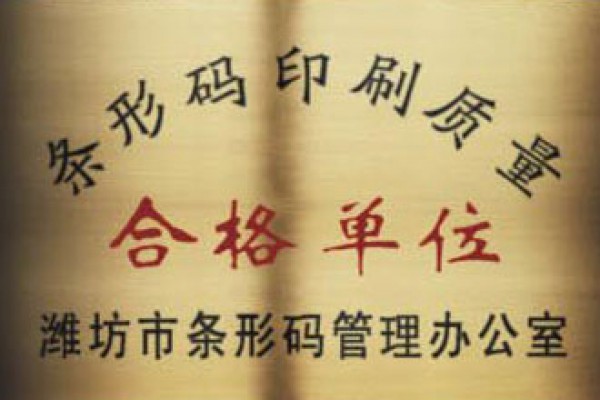 条形码印刷质量
合格单位
潍坊市条形码管理办公室